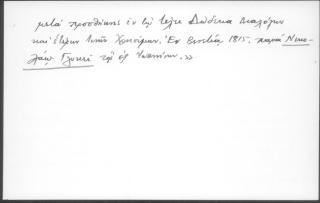 μετὰ προσθήκης ἐν τῷ τέλει Δώδεκα Διαλόγων
καὶ ἑτέρων τινῶν Χρησίμων. Ἐν Βενετίᾳ 1815. παρὰ Νικο-
λάῳ Γλυκεῖ τῷ ἐξ Ἰωαννίνων.»